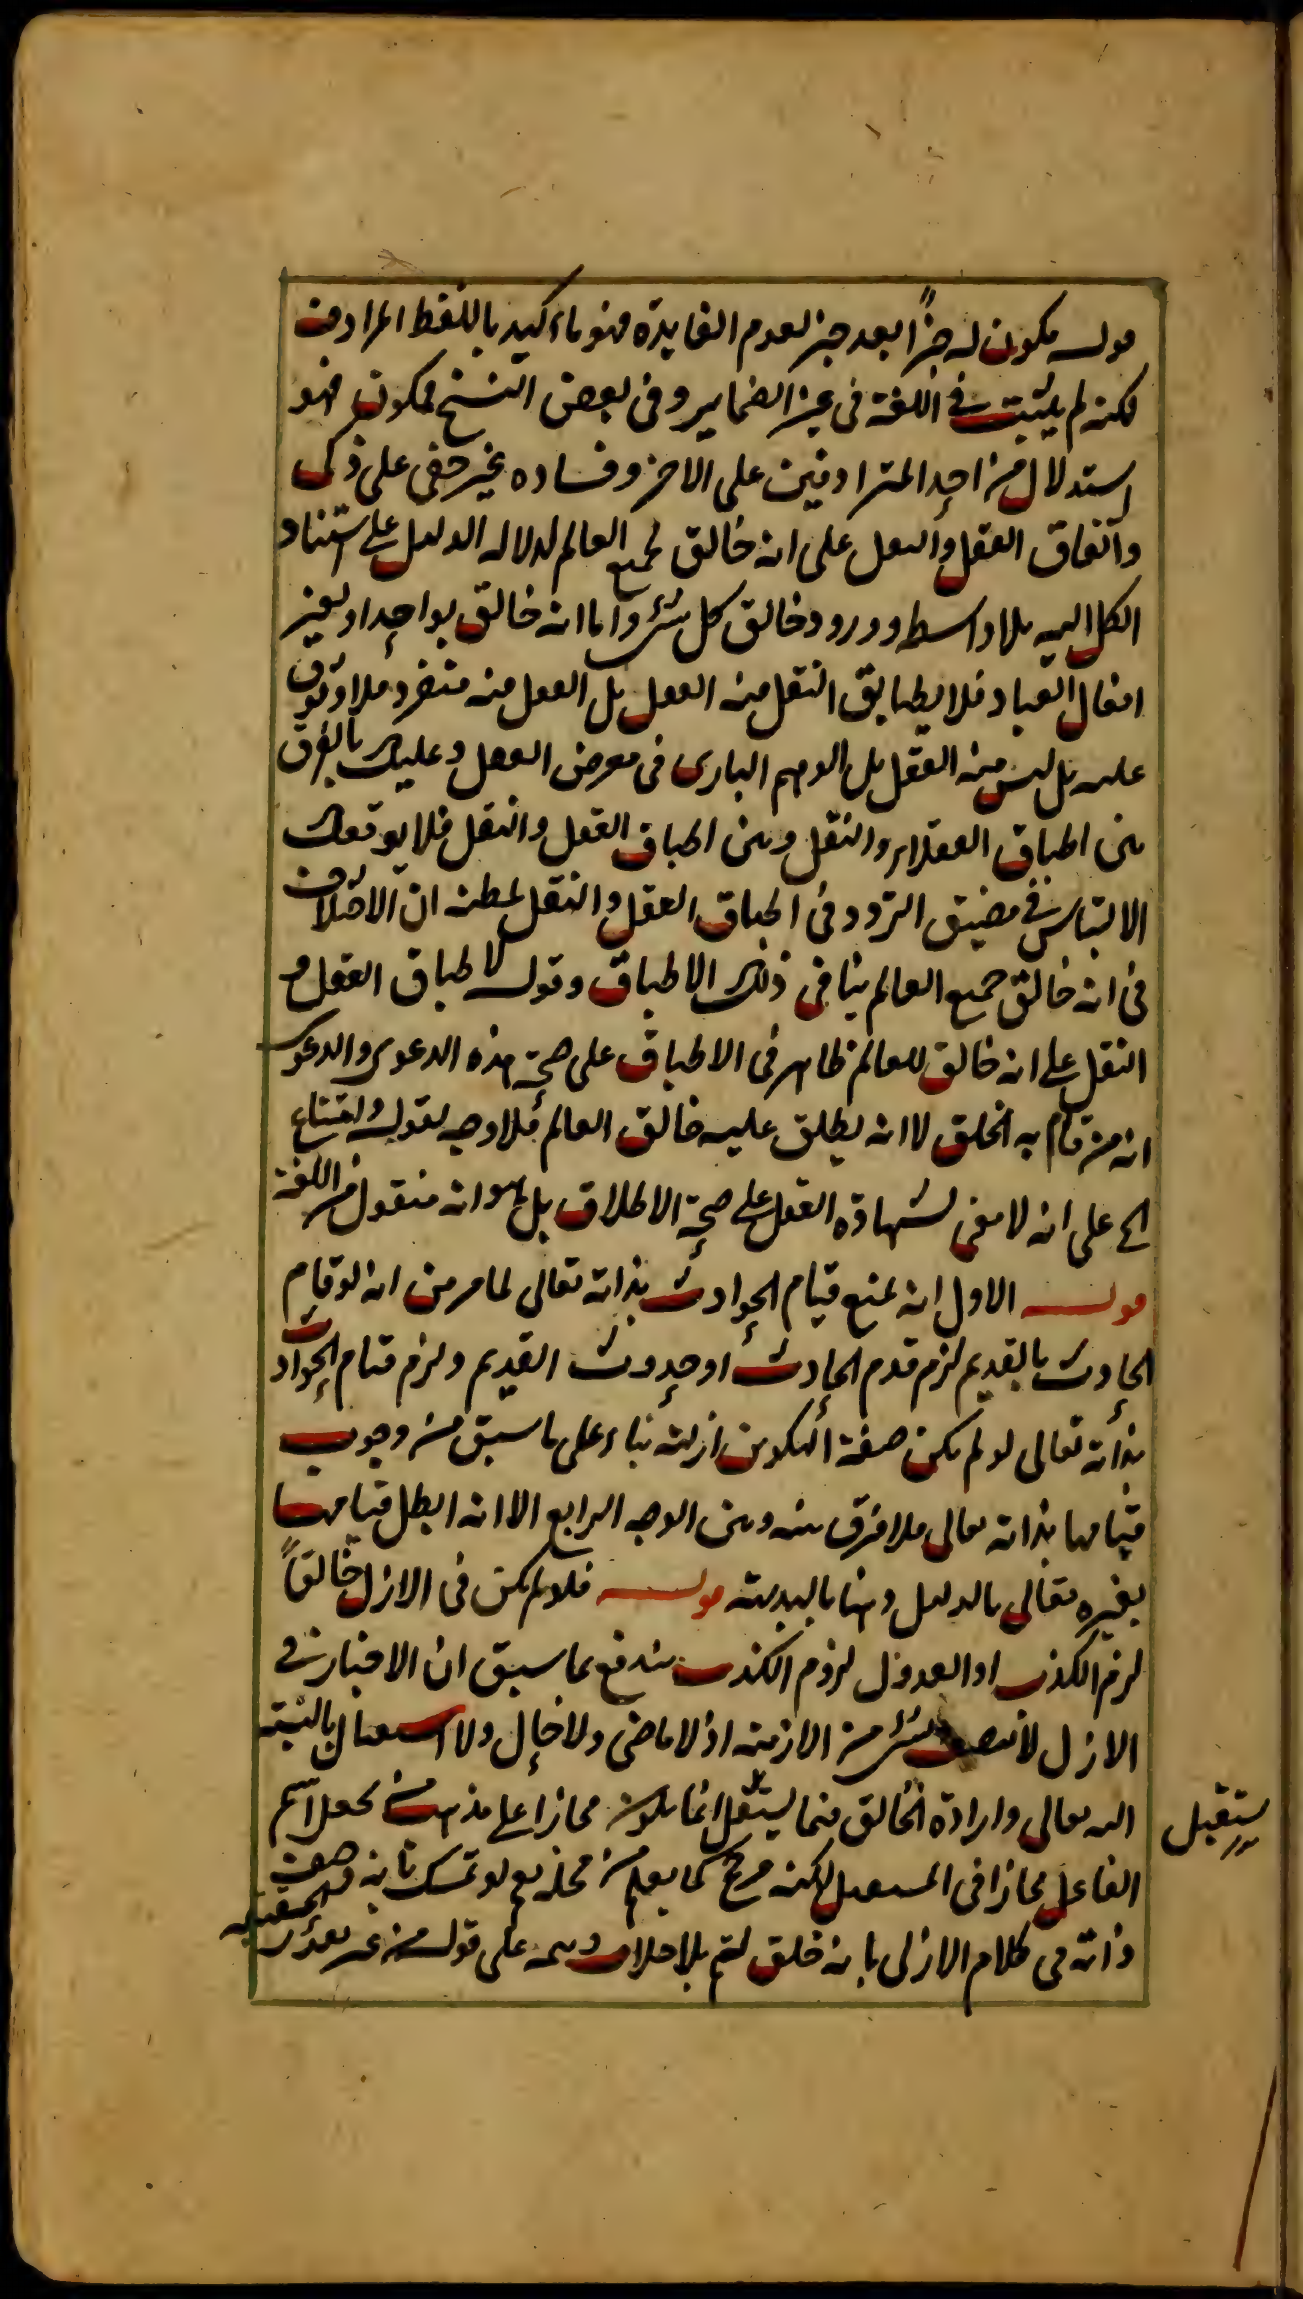 قوله مكون له خبرًا بعد خبر لعدم الفايدة فهو تاكيد باللفظ المرادف
لكنه لم يثبت في اللغة في غير الضماير وفي بعض النسخ فمكون فهو
استدلال من احد المترادفين على الاخر وفساده غير خفى على ذكى
واتفاق العقل والنقل على انه خالق لجميع العالم لدلالة الدليل على استناد
الكل اليه بلا واسطه وورود خالق كل شئ واما انه خالق بواحد او لغير
افعال العباد فلا يطابق النقل فيه العقل بل العقل فيه منفرد فلا وثوق
عليه بل ليس فيه العقل بل الوهم البارى في معرض العقل وعليك بالفرق
بين اطباق العقلاء والنقل وبين اطباق العقل والنقل فلا يوقعك
الالتباس في مضيق التردد في اطباق العقل والنقل لمظنه ان الاختلاف
في انه خالق جميع العالم ينافى ذلك الاطباق وقوله لاطباق العقل و
النقل على انه خالق للعالم ظاهر في الاطباق على صحة هذه الدعوى والدعوى
انه من قام به الخلق لا انه يطلق عليه خالق العالم فلا وجه لقوله وامتناع
الخ على انه لا معنى لشهادة العقل على صحة الاطلاق بل هو انه منقول من اللغة
قوله الاول انه يمنع قيام الحوادث بذاته تعالى لما مر من انه لو قام
الحادث بالقديم لزم قدم الحادث او حدوث القديم ولزم قيام الحوادث
بذاته تعالى لو لم يكن صفة التكوين ازلية بناء على ما سبق من وجوب
قيامها بذاته تعالى فلا فرق بينه وبين الوجه الرابع الا انه ابطل قيامها
بغيره تعالى بالدليل وهنا بالبديهة قوله فلو لم يكن في الازل خالقًا
لزم الكذب او العدول لزوم الكذب يندفع بما سبق ان الاخبار في
الازل لا يتصف بشئ من الازمنه اذ لا ماضى ولا حال ولا استقبال بالنسبة
الله تعالى وارادة الخالق فيما يستقل انما يكون مجازا على مذهب من يجعل اسم
يستقبل
الفاعل مجازا في المستقبل لكنه مرجح كما يعلم من محله نعم لو تمسك بانه وصف
ذاته في كلام الازلى بانه خلق لتم بلا خلاف قوله من غير تعذر الحقيقة